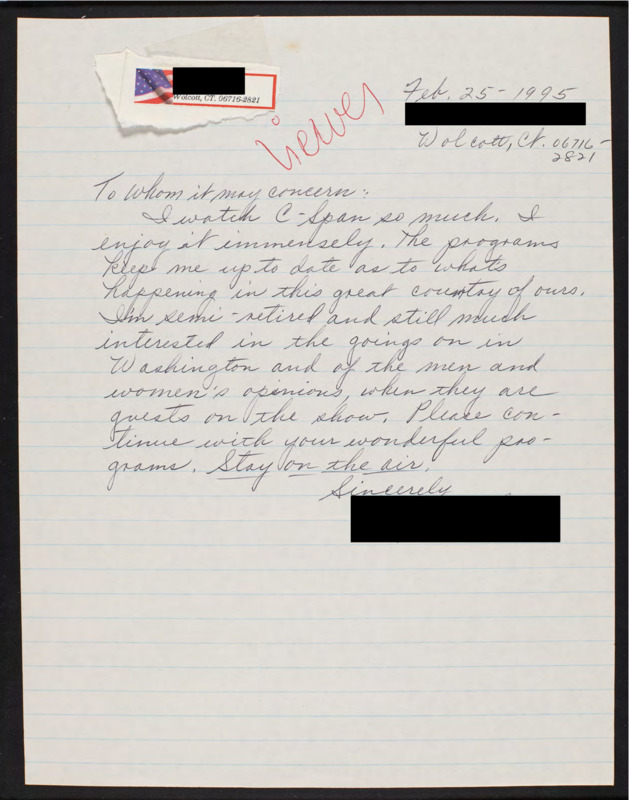 Wolcott, CT. 06716-2821
viewer
Feb. 25-1995
Wolcott, Ct. 06716-
2821
To whom it may concern:
I watch C-Span so much. I
enjoy it immensely. The programs
keep me up to date as to whats
happening in this great country of ours.
I'm semi-retired and still much
interested in the goings on in
Washington and of the men and
women's opinions, when they are
guests on the show. Please con-
tinue with your wonderful pro-
grams. Stay on the air.
Sincerely